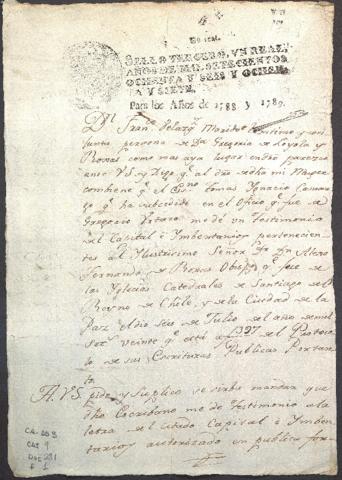 Un real.
SELLO TERCERO, VN REAL,
AÑOS DE MIL SETECIENTOS
OCHENTA Y SEIS Y OCHEN-
TA Y SIETE.
Para los Años de 1788 y 1789.
Dn. Franco. Marido lexitimo y con
junta persona de Da. Gregoria de Loyola y
Roxas como mas aya lugar en dro parezco
ante VS. y Digo qe. al dro de dha mi Muger
combiene qe. el Esno. Tomas Ignacio
qe. ha subcedido en el Oficio qe. fue de
Gregorio me dé un Testimonio
del Capital é Imbentarios pertenecien
tes al Ilustrisimo Señor
Fernando de Roxas Obispo qe. fue de
las Yglecias Catedrales de Santiago del
Reyno de Chile, y de la Ciudad de la
Paz el dia seis de Julio del año de mil
setz. veinte qe. está a f 1397 del Protoco
lo de sus Escrituras Publicas Por tan
to
A. VS. pide y Suplica se sirba mandar que
dho Escribano me dé testimonio a la
letra del citado Capital é Imben
tarios autorizado en publica for
CA-
CAJ 9
DOC 281
F 1